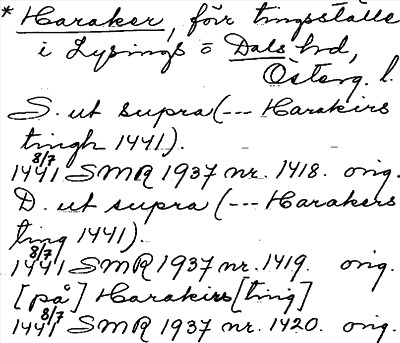 * Haraker, förr tingsställe
i Lysings o Dals hd,
Österg. l.
S. ut supra (--- Harakirs
tingh 1441).
8/7
1441 SMR 1937 nr. 1418. orig.
D. ut supra (--- Harakers
ting 1441).
8/7
1441 SMR 1937 nr. 1419. orig.
[på] Harakirs [ting]
8/7
1441 SMR 1937 nr. 1420. orig.